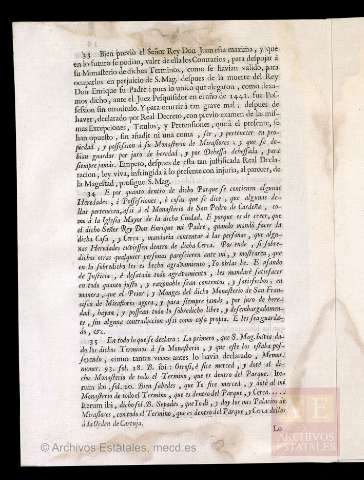 33 Bien previó el Señor Rey Don Juan esta maxima, y que
en lo futuro se podian, valer de ella los Contrarios, para despojar á
su Monasterio de dichos Terminos, como se havian valido, para
ocuparlos en perjuicio de S. Mag. despues de la muerte del Rey
Don Enrique su Padre; pues lo unico que alegaron, como dexa-
mos dicho, ante el Juez Pesquisidor en el año de 1442. fue Pos-
session sin otro titulo. Y para ocurrir á tan grave mal, despues de
haver, declarado por Real Decreto, con previo examen de las mis-
mas Excepciones, Titulos, y Pretensiones, que á el presente, se
han opuesto, sin añadir ni una coma, ser, y pertenecer en pro-
piedad, y possession á su Monasterio de Miraflores; y que se de-
bian guardar por juro de heredad, y por Dehessa dehessada, para
siempre jamás. Empero, despues de esta tan justificada Real Decla-
racion, ley viva, infringida á lo presente con injuria, al parecer, de
la Magestad, prosigue S. Mag.
34 E por quanto dentro de dicho Parque se contienen algunas
Heredades, é Possessiones, é cosas que se dice, que algunas de-
llas pertenecian, assi á el Monasterio de San Pedro de Cardeña, co-
mo á la Iglesia Mayor de la dicha Ciudad. E porque es de creer, que
el dicho Señor Rey Don Enrique mi Padre, quando mandó facer la
dicha Casa, y Cerca, mandaria contentar á las personas, que algu-
nas Heredades oviessen dentro de dicha Cerca. Por ende, si sobre
dichas otras qualquier personas parescieren ante mi, y mostraren, que
en lo sobredicho les es fecho agraviamiento, Yo oirlas he. E usando
de Justicia, é desatando todo agraviamiento, les mandaré satisfacer
en todo quanto justo, y razonable sean contentos, y satisfechos, en
manera, que el Prior, y Monges del dicho Monasterio de San Fran-
cisco de Miraflores agora, y para siempre jamás, por juro de here-
dad, hayan, y possean todo lo sobredicho libre, y desembargadamen-
te, sin alguna contradicion assi como cosa propia. E les sea guarda-
do, &c.
35 En todo lo que se declara: Lo primero, que S. Mag. havia da-
do los dichos Terminos á su Monasterio, y que este los estaba pos-
seyendo, como tantas veces antes lo havia declarado,
numer. 93. fol. 18. B. ibi: Otrosi, è fice merced, y doté al di-
cho Monasterio de todo el Termino, que es dentro del Parque. Ite-
rum ibi, fol. 20. Bien sabedes, que Yo fice merced, y doté al mi
Monasterio de todo el Termino, que es dentro del Parque, y Cerca....
Iterum ibi, dicho fol. B. Sepades, que Yo dí, y doy los mis Palacios de
Miraflores, con todo el Termino, que es dentro del Parque, y Cerca dellos
á la Orden de Cartuxa.
Lo
© Archivos Estatales, mecd.es
ARCHIVOS
ESTATALES